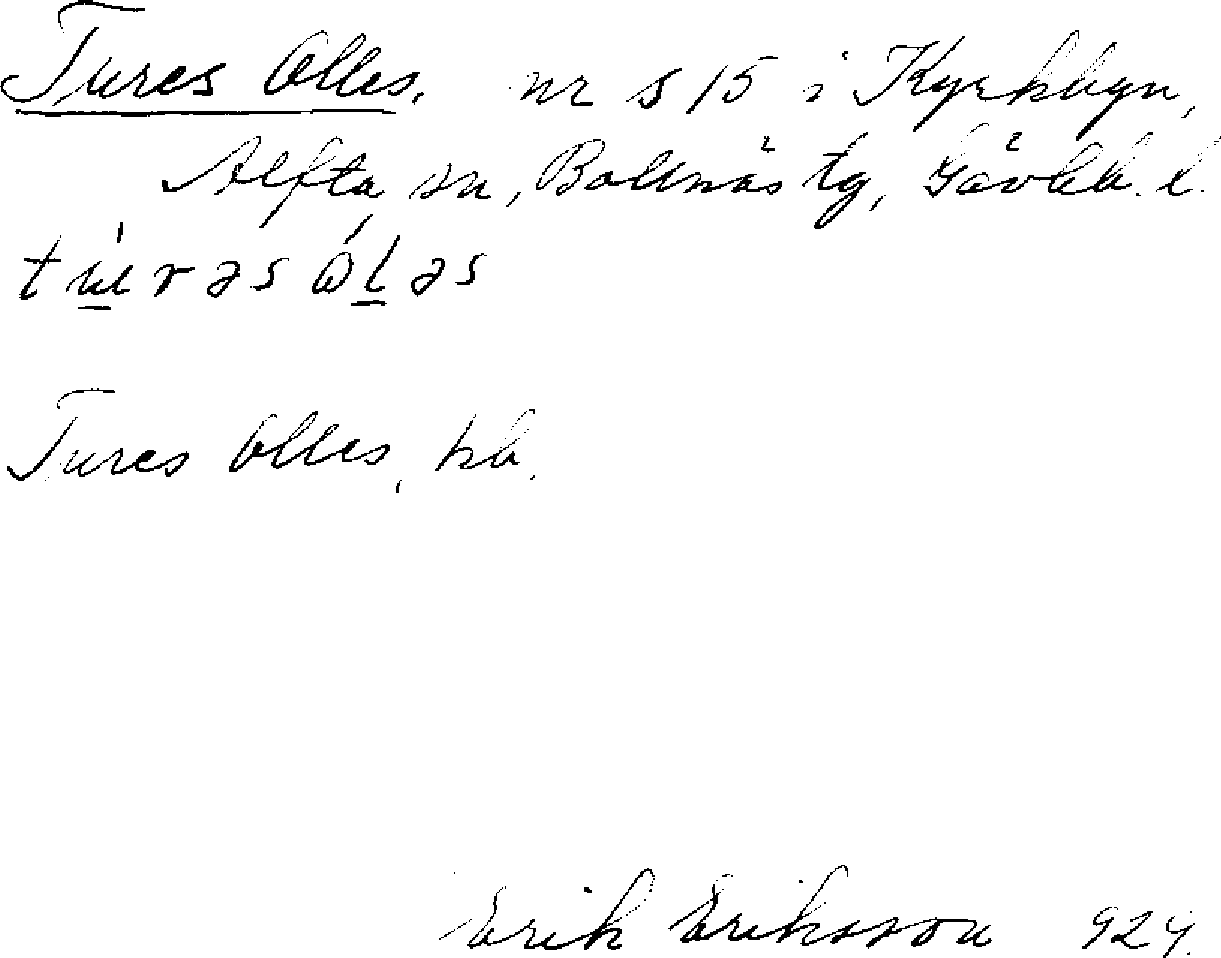 Tures Olles, nr s 15 i Kyrkbyn,
Alfta sn, Bollnäs tg, Gävleb. l.
tu̲rəs ɷ́l̲əs
Tures Olles, kb.
Erik Eriksson 924.